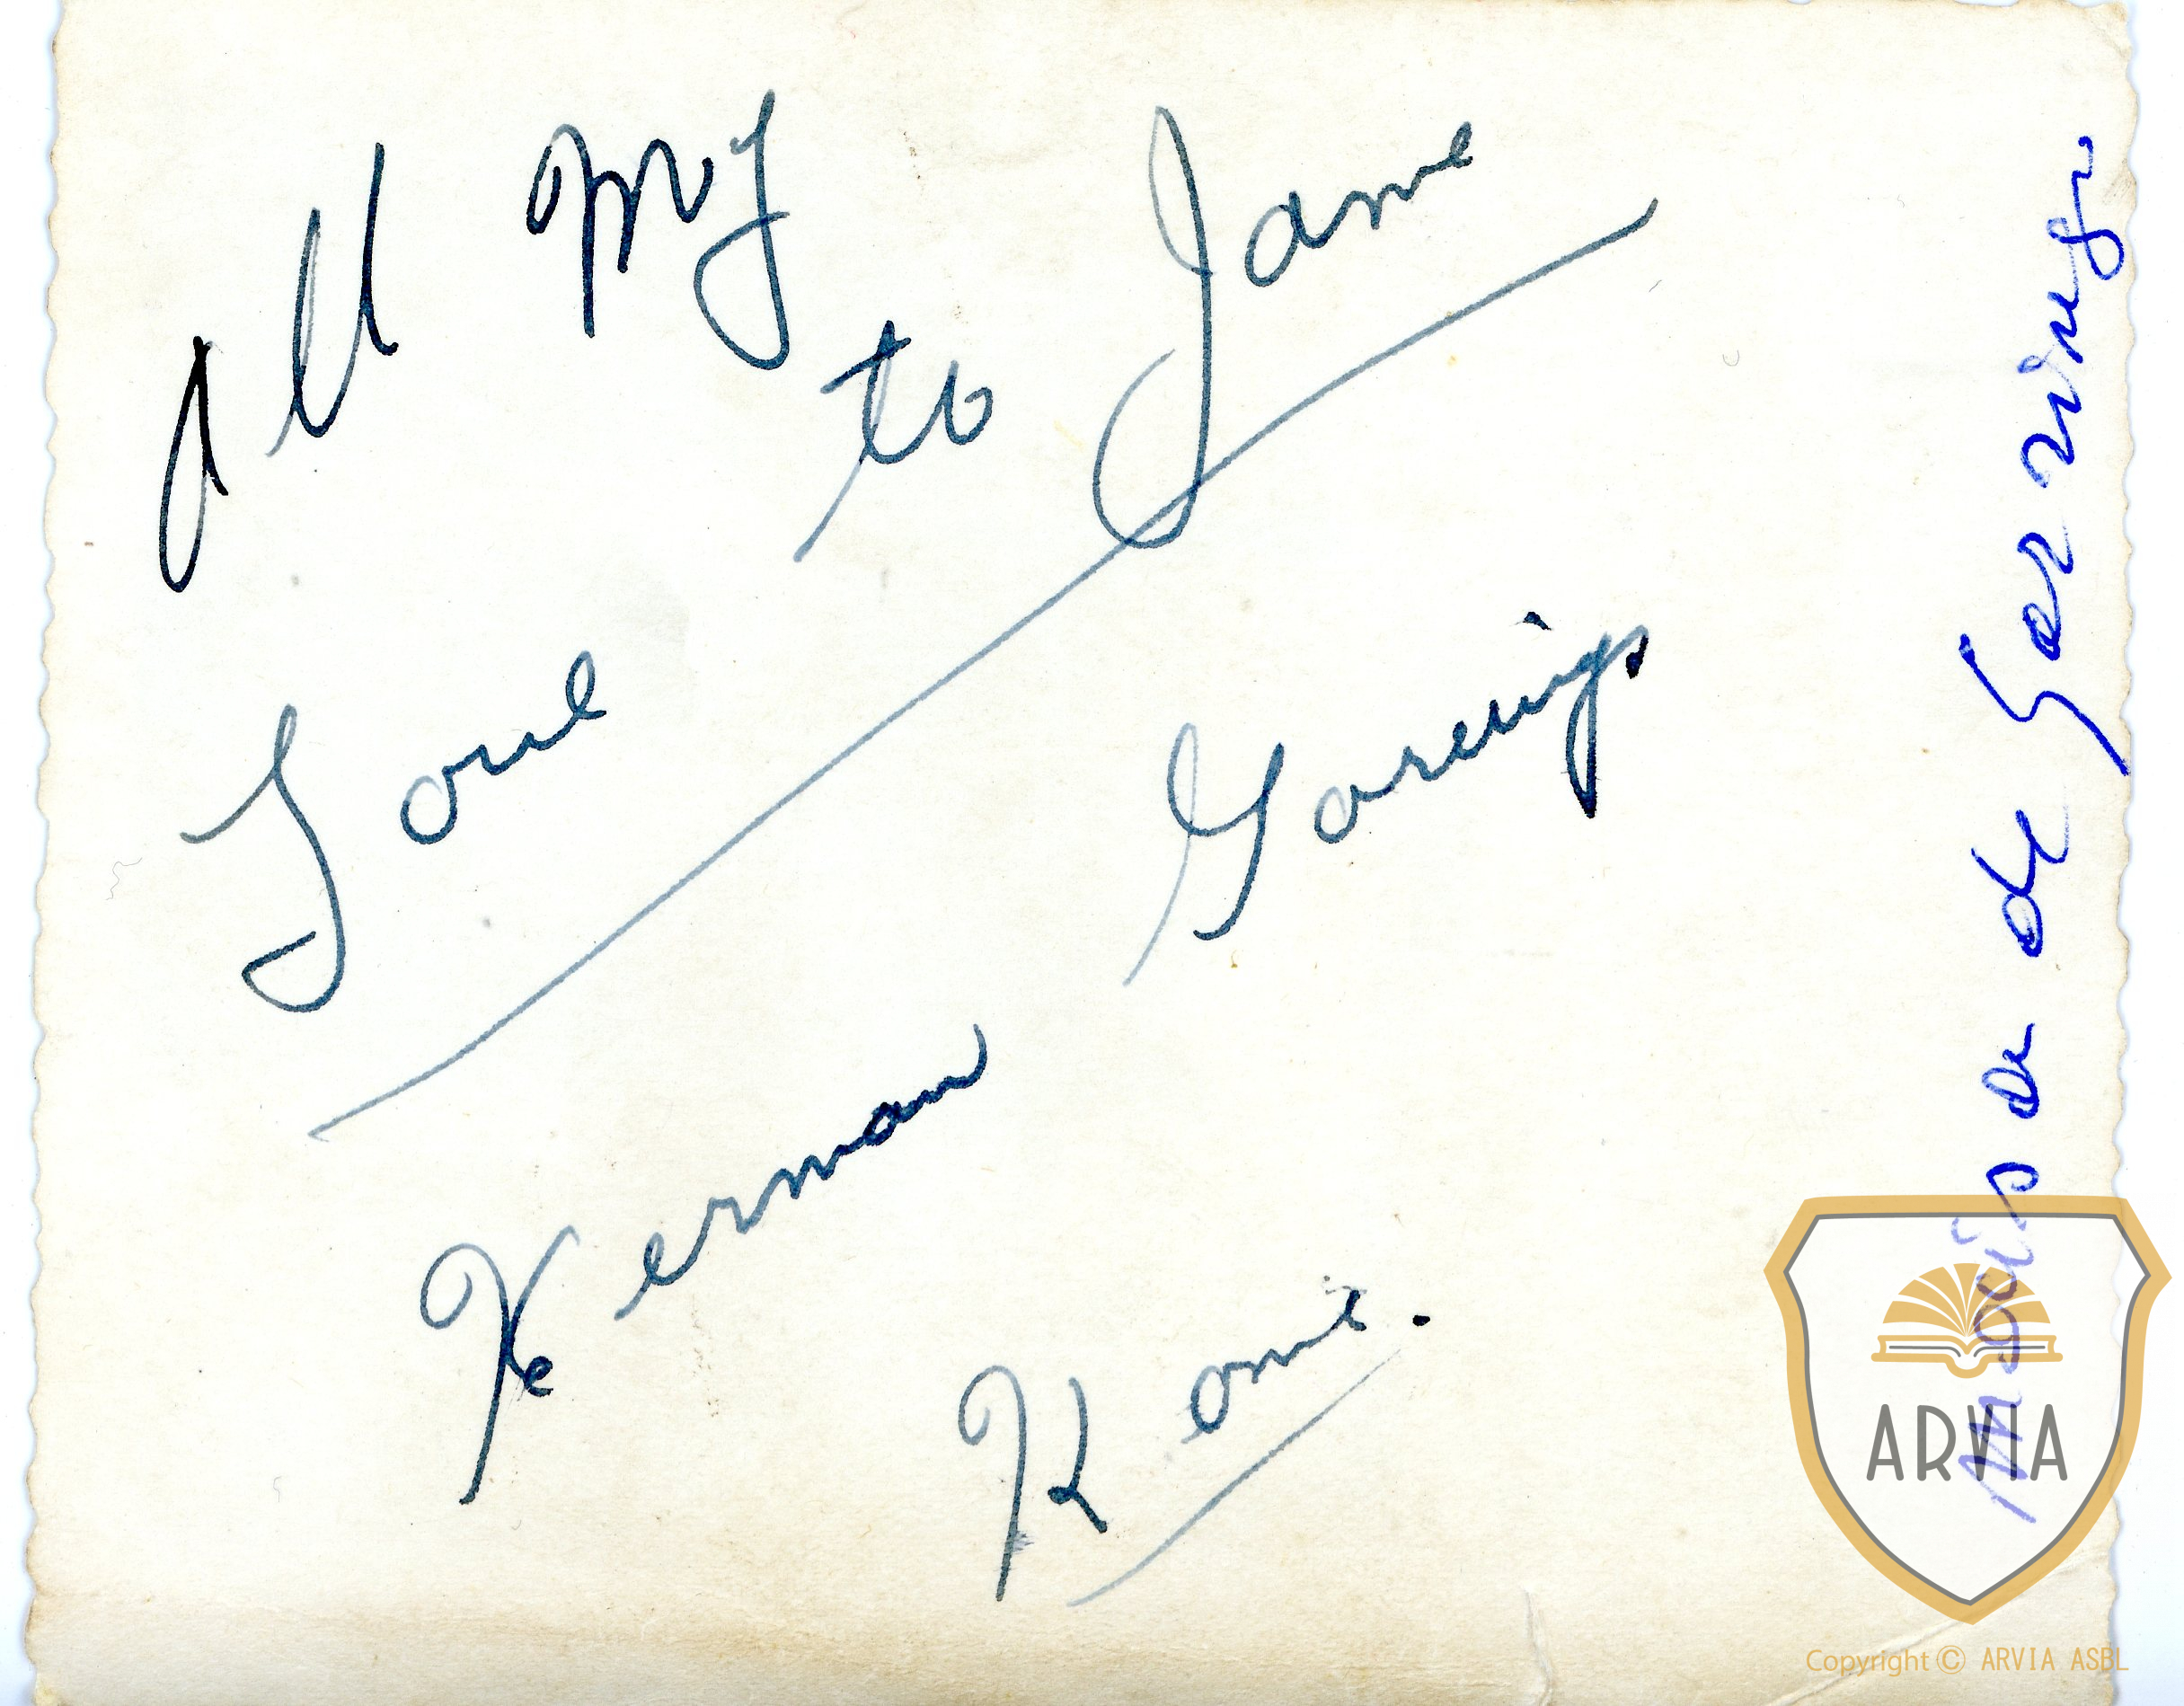 All my
Love to Jane
Herman Goreings
Home.
Maison de Goering
ARVIA
Copyright © ARVIA ASBL